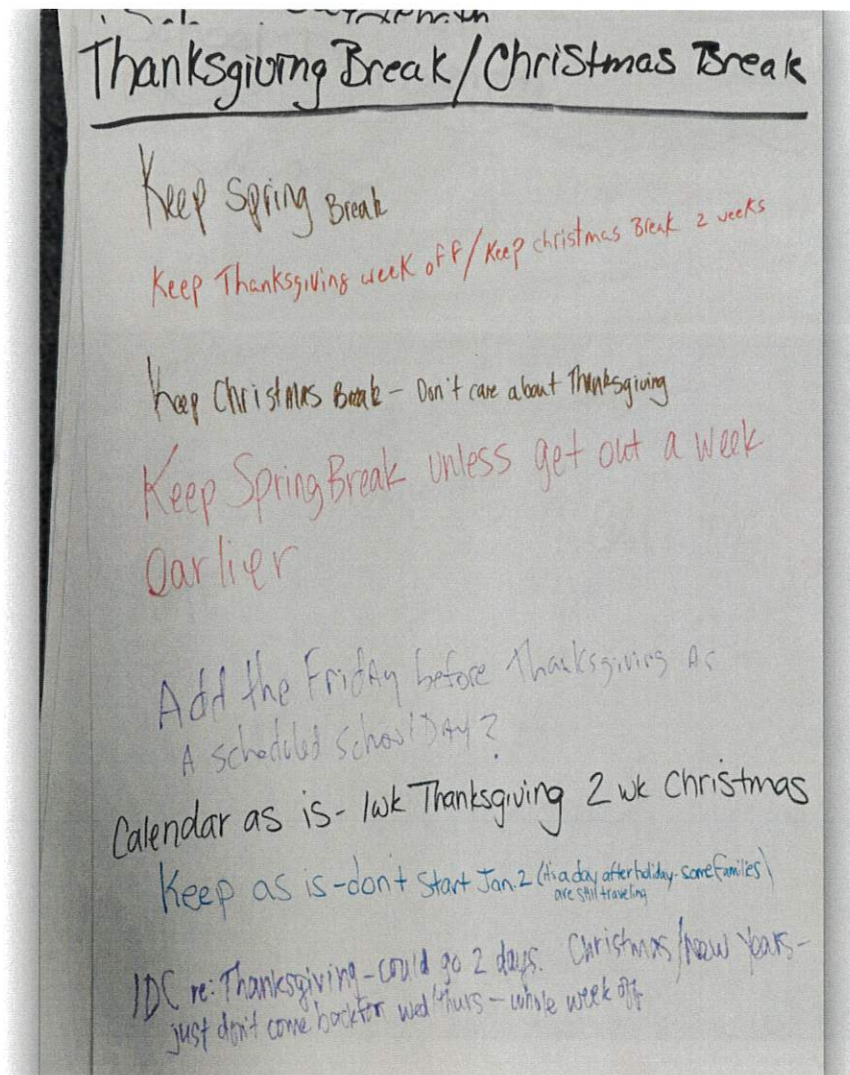 Thanksgiving Break/Christmas Break
Keep Spring Break
Keep Thanksgiving week off/Keep christmas Break 2 weeks
Keep Christmas Break - Don't care about Thanksgiving
Keep Spring Break unless get out a week
earlier
Add the Friday before Thanksgiving As
A scheduled School Day?
Calendar as is- 1wk Thanksgiving 2 wk Christmas
Keep as is-don't start Jan. 2 (it's a day after holiday-some families)
are still traveling
IDC re: Thanksgiving-could go 2 days. Christmas/New Years-
just don't come back for wed/thurs - whole week off